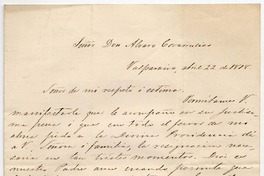 Señor Don Alvaro Covarrubias
Valparaiso, abril 22 de 1878.
Señor de mi respeto i estima:
Permitame V.
manifestarle que le acompaño en su justísi
ma pena i que con todo el fervor de mi
alma pido a la Divina Providencia dé
a V. Señora i familia, la resignacion nece
saria en tan tristes momentos. Dios es
nuestro Padre aun cuando permite que